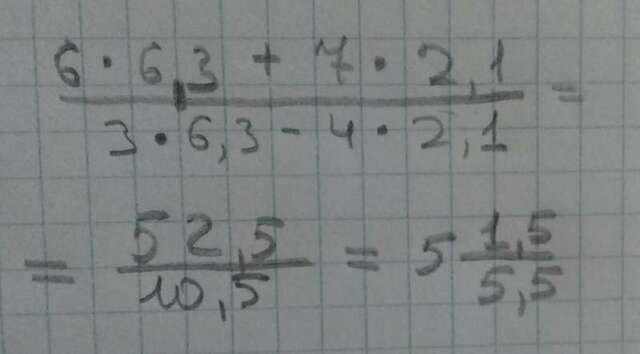 6 · 6,3 + 7 · 2,1 =
3 · 6,3 - 4 · 2,1
= 52,5 = 5 1,5
10,5 5,5